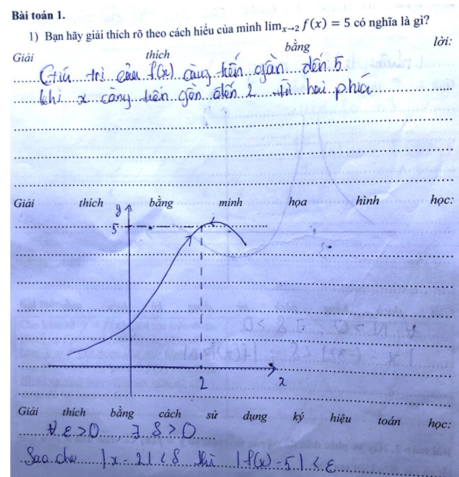 Bài toán 1.
1) Bạn hãy giải thích rõ theo cách hiểu của mình lim x→2 f(x) = 5 có nghĩa là gì?
Giải thích bằng lời:
Giá trị của f(x) càng tiến gần đến 5
khi x càng tiến gần đến 2 từ hai phía
Giải thích bằng minh họa hình học:
y
5
2
x
Giải thích bằng cách sử dụng ký hiệu toán học:
∀ ε > 0 ∃ δ > 0
Sao cho |x - 2| < δ thì |f(x) - 5| < ε